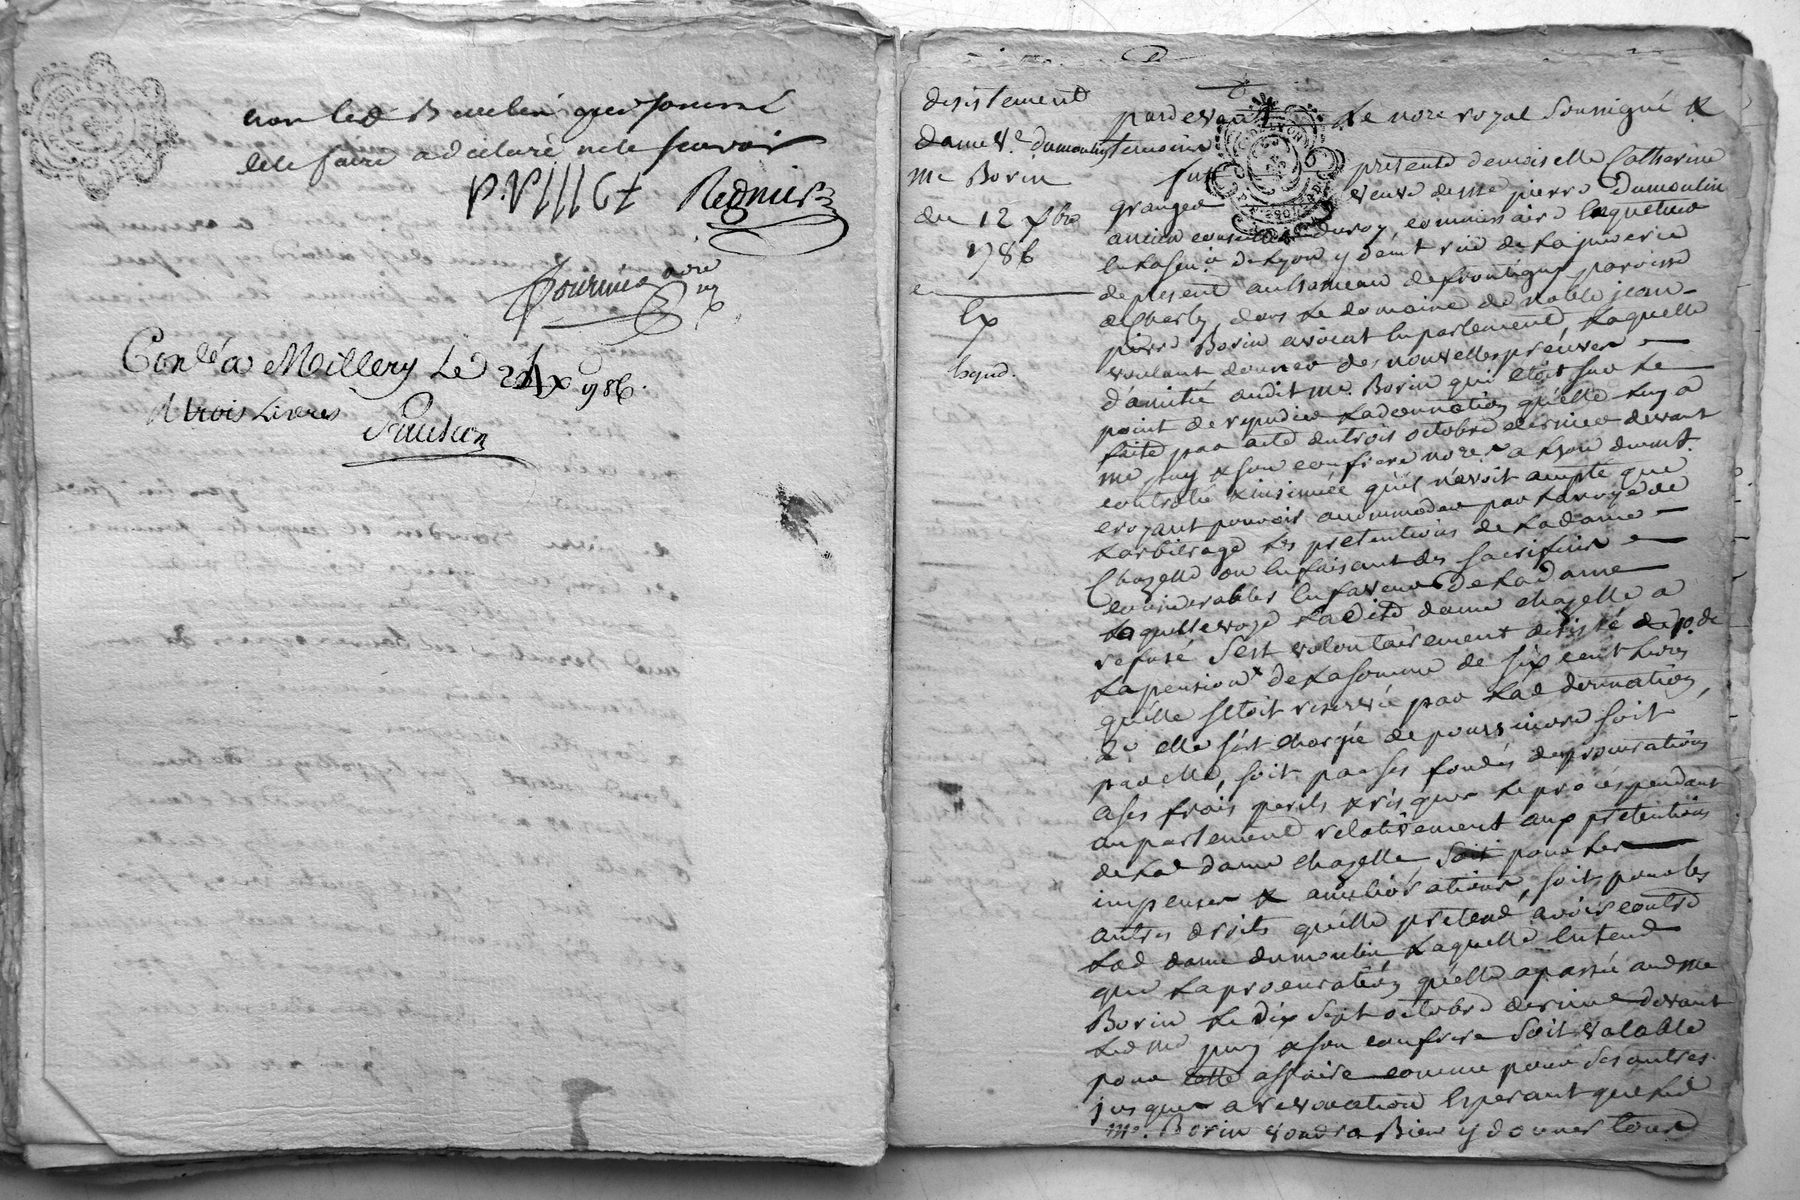 non led. Barbier qui somme
de le faire a declaré ne le scavoir
Regnier
Con.lé a Millery Le 20 Xbre 1786.
trois Livres
desistement
dame V.e dumoulin
me Borin
du 12 Xbre
1786
Ex
pardevant Le nore royal soussigné &
temoins furt presente demoiselle Catherine
granger veuve de me pierre Dumoulin
ancien conseiller du roy, commissaire Enquetteur
En la sen.é de Lyon y demt rue de La juiverie
de present au hameau de frontigny paroisse
de Charly dans Le domaine de noble jean-
pierre Borin avocat En parlement, Laquelle
voulant donner des nouvelles preuves
d'amitié audit me. Borin qui étoit sur Le
point de repudier La donnation qu'elle Luy a
faite par acte du trois octobre dernier devant
me puy & son confrere nores a Lyon dument
controlé & insinuée qu'il n'avoit accepté que
croyant pouvoir accommoder par La voye de
L'arbitrage Les pretentions de La dame
Chazelle ou En faisant des sacrifices
considerables En faveur de La dame
Laquelle voye Ladite dame chazelle a
refusé s'est volontairement desisté de p.o de
La pension de La somme de six cent Livres
qu'elle s'étoit reservée par Lad donnation,
2.o elle s'est chargée de poursuivre soit
par elle, soit par ses fondés de procuration
a ses frais perils & risques Le procés pendant
au parlement relativement aux pretentions
de Lad dame chazelle, soit pour Les
impenses & ameliorations, soit pour les
autres droits qu'elle pretend avoir contre
Lad dame dumoulin Laquelle Entend
que La procuration qu'elle a passée aud me
Borin Le dix sept octobre dernier devant
Led me puy & son confrere soit valable
pour cette affaire comme pour ses autres
jusques a revocation Esperant que Led
me. Borin voudra Bien y donner tous